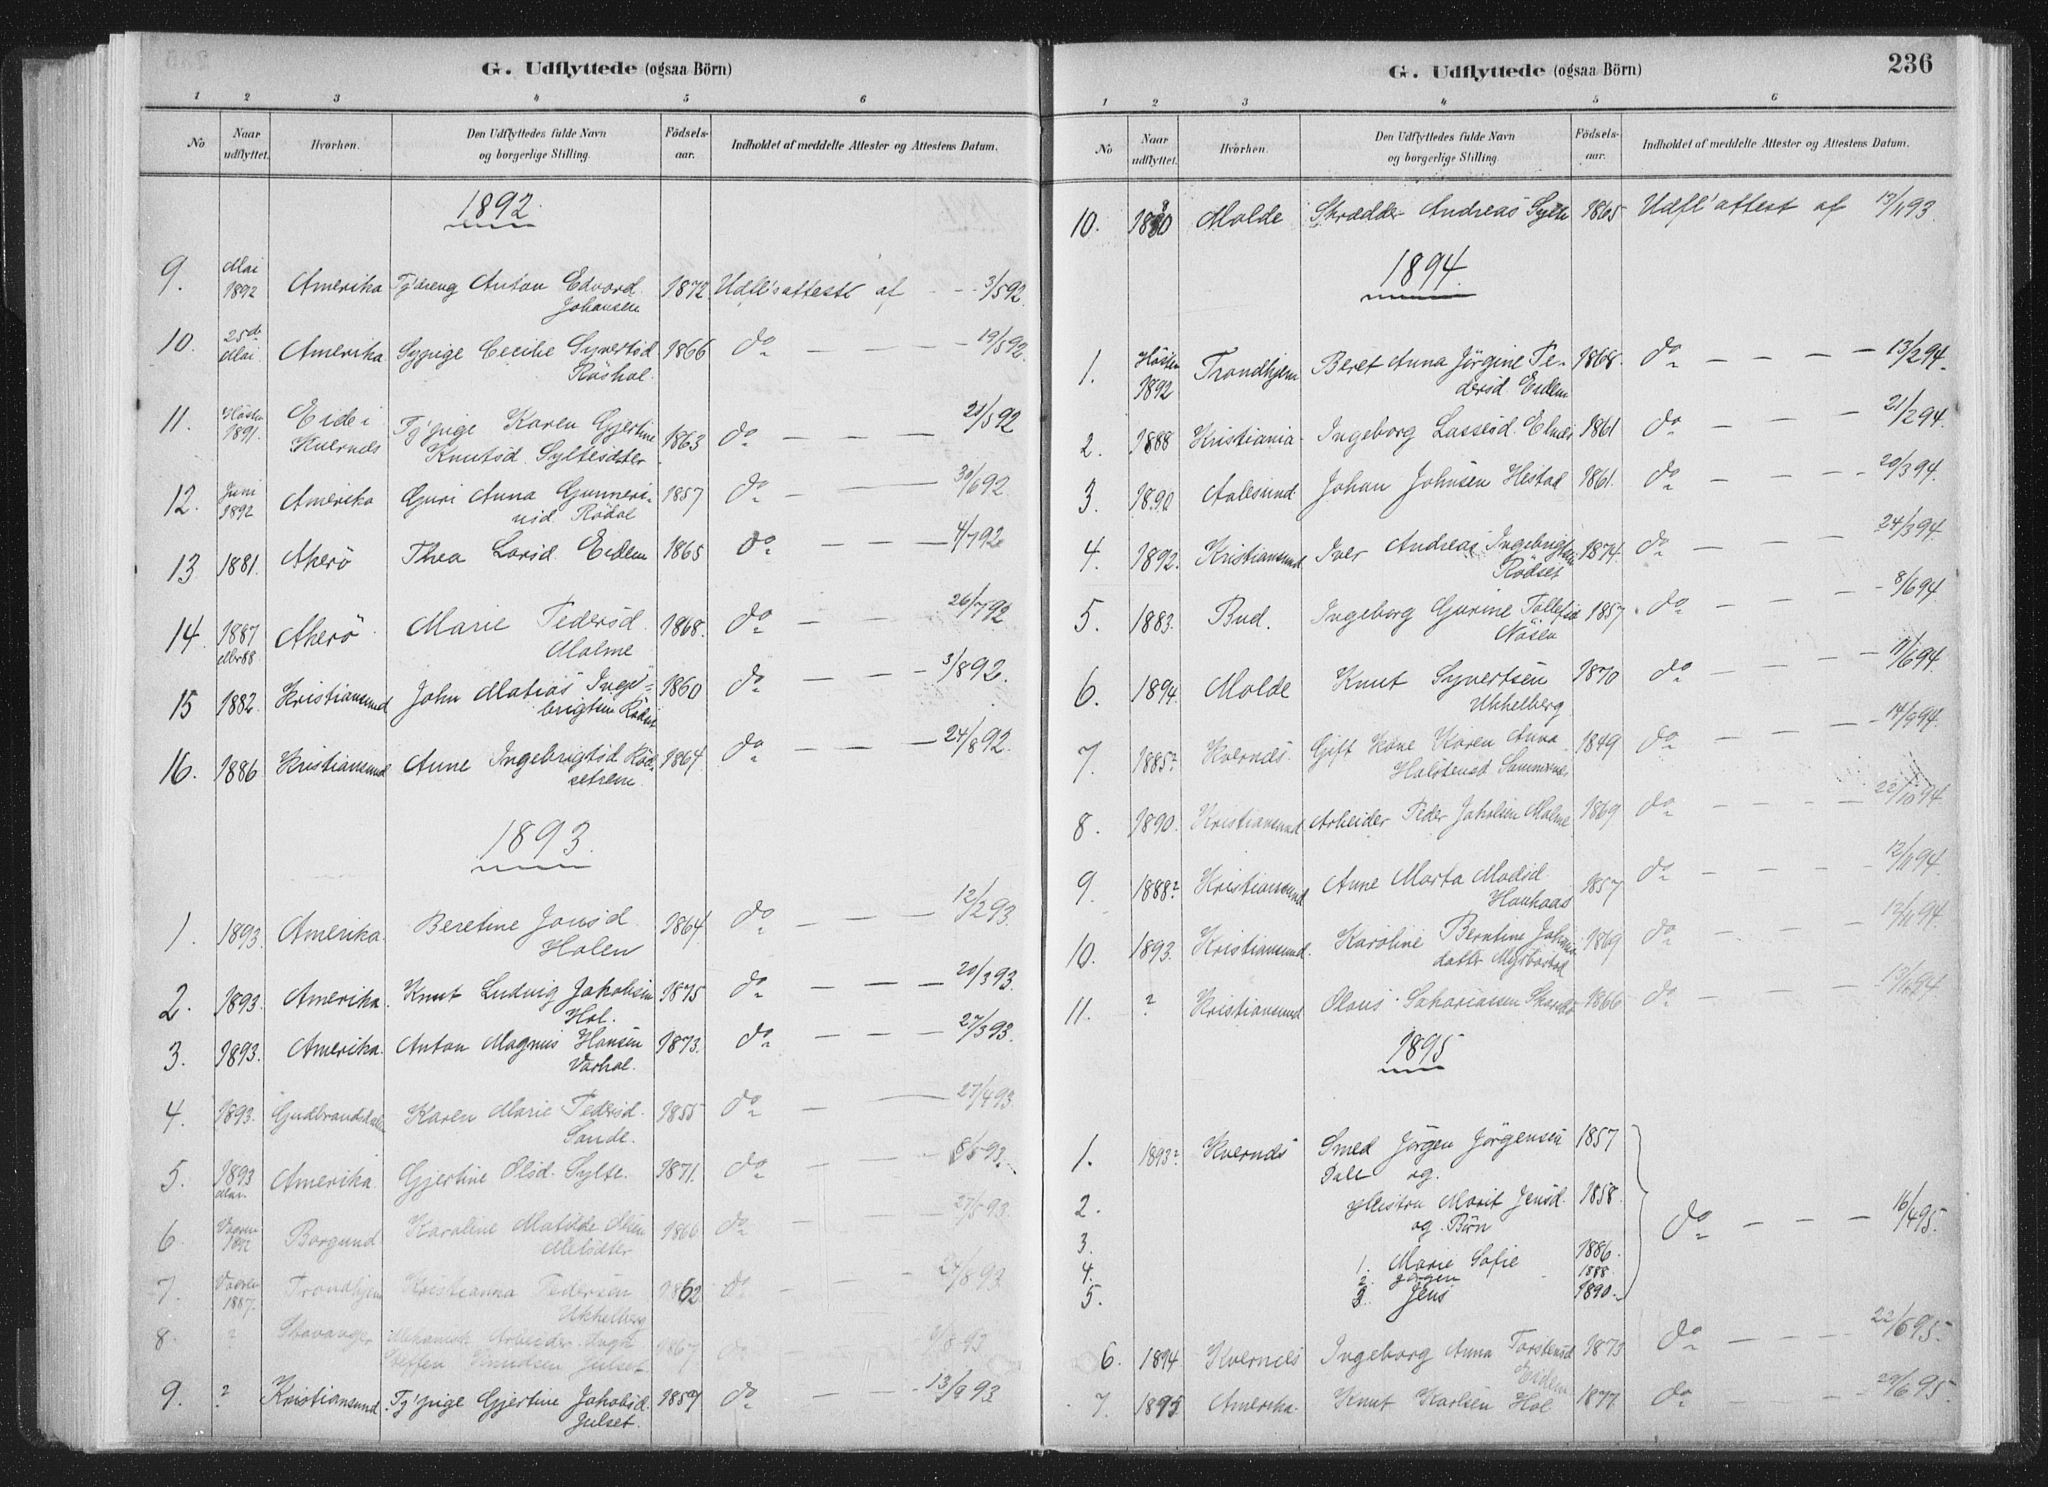 G. Udflyttede (ogsaa Börn)
1 2 3 4 5 6
No Naar udflyttet. Hvorhen. Den Udflyttedes fulde Navn og borgerlige Stilling. Födsels-aar. Indholdet af meddelte Attester og Attestens Datum.
1892.
9. Mai 1892 Amerika Tj'dreng Anton Edvard 1872 Udfl's attest af - - 3/5 92.
Johansen
10. 25de Mai Amerika Sypige Cecilie Syvertsd 1866 do — — — 19/5 92.
Röshol.
11. Hösten 1891. Eide i Tj'pige Karen Gjertine 1863 do — — — 21/5 92
Kvernes Knutsd. Syltesdter
12. Juni 1892 Amerika Guri Anna Gunneri- 1857 do — — 30/6 92
usd. Rödal
13 1881. Akerö Thea Larsd. Eidem 1865 do — — — 4/7 92
14. 1887 eller 88 Akerö Marie Pedersd. 1868. do — — — 26/7 92
Malme
15 1882. Kristiansund John Matias Inge- 1860 do — — — 3/8 92.
brigtsen Rödset
16. 1886 Kristiansund Anne Ingebrigtsd Röd- 1864 do — — — 24/8 92.
setrem
1893.
1. 1893. Amerika. Beretine Jonsd 1864. do — — — 12/2 93.
Holen
2. 1893. Amerika. Knut Ludvig Jakobsen 1875 do — — — 20/3 93.
Hol.
3. 1893. Amerika. Anton Magnus Hansen 1873. do — — — 27/3 93.
Varhol.
4. 1893. Gudbrandsdalen Karen Marie Pedersd. 1855 do — — 27/4 93.
Sande.
5. 1893 Mai. Amerika. Gjertine Olsd. Sylte. 1871. do — — — 8/5 93.
6 Vaaren 1892 Borgund Karoline Matilde 1866 do — — — 27/5 93.
7. Vaaren 1887. Trondhjem Kristianna Pedersen 1862 do — — — 27/8 93
Ukkelberg
8. ? Stavanger Mekanisk Arbeider 1867 do — — 93
Steffen Knudsen Julset
9. ? Kristiansund Tj'pige Gjertine Jakobsd. 1859 do — — — 13/9 93
Julset.
G. Udflyttede (ogsaa Börn) 236
1 2 3 4 5 6
No Naar udflyttet. Hvorhen. Den Udflyttedes fulde Navn og borgerlige Stilling. Födsels-aar. Indholdet af meddelte Attester og Attestens Datum.
10. Molde Skrædder Andreas Sylte 1865 Udfl'attest af 13/11 93.
1894.
1. Hösten 1892 Trondhjem Beret Anna Jörgine Pe- 1868. do — — — — 13/2 94.
dersd Eidem
2. 1888 Kristiania Ingeborg Lassesd. Elnes 1861 do — — — 21/2 94.
3. 1890 Aalesund. Johan Johnsen Hestad 1861. do — — — 20/3 94.
4. 1892. Kristiansund Iver Andreas Ingebrigtsen 1874. do — — — 24/3 94.
Rödset
5. 1883. Bud. Ingeborg Gurine Tollefsd 1857. do — — — 8/6 94
Nåsen
6. 1894. Molde Knut Syvertsen 1870 do — — — 11/6 94
Ukkelberg
7. 1885? Kvernes. Gift Kone Karen Anna 1849 do — — — 14/9 94.
Halstensd
8. 1890. Kristiansund Arbeider Peder Jakobsen Malme 1869 do — — — 22/10 94
9. 1888? Kristiansund Anne Marta Madsd 1857 do — — — 12/11 94
Haukaas
10. 1893. Kristiansund. Karoline Berntine 1869 do — — — 12/11 94.
datter Myrbostad
11. ? Kristiansund Olaus Sakariassen 1866 do — — — 94
1895
1. 1893? Kvernes Smed Jörgen Jörgensen 1857
Dale og
2. Hustru Marit Jensd. 1858.
og Börn
do — — — 16/4 95.
3. 1. Marie Sofie 1886.
4. 2. Jörgen 1888.
5. 3. Jens 1890.
6. 1894. Kvernes Ingeborg Anna Torstensd 1873 do — — — 22/6 95.
Eidem
7. 1895 Amerika. Knut Karlsen Hol 1877. do — — — 29/6 95.